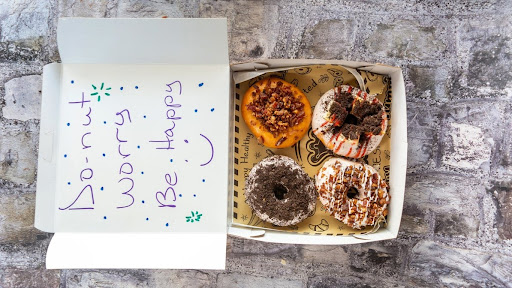 Do-nut
worry
Be Happy
:)
Healthy